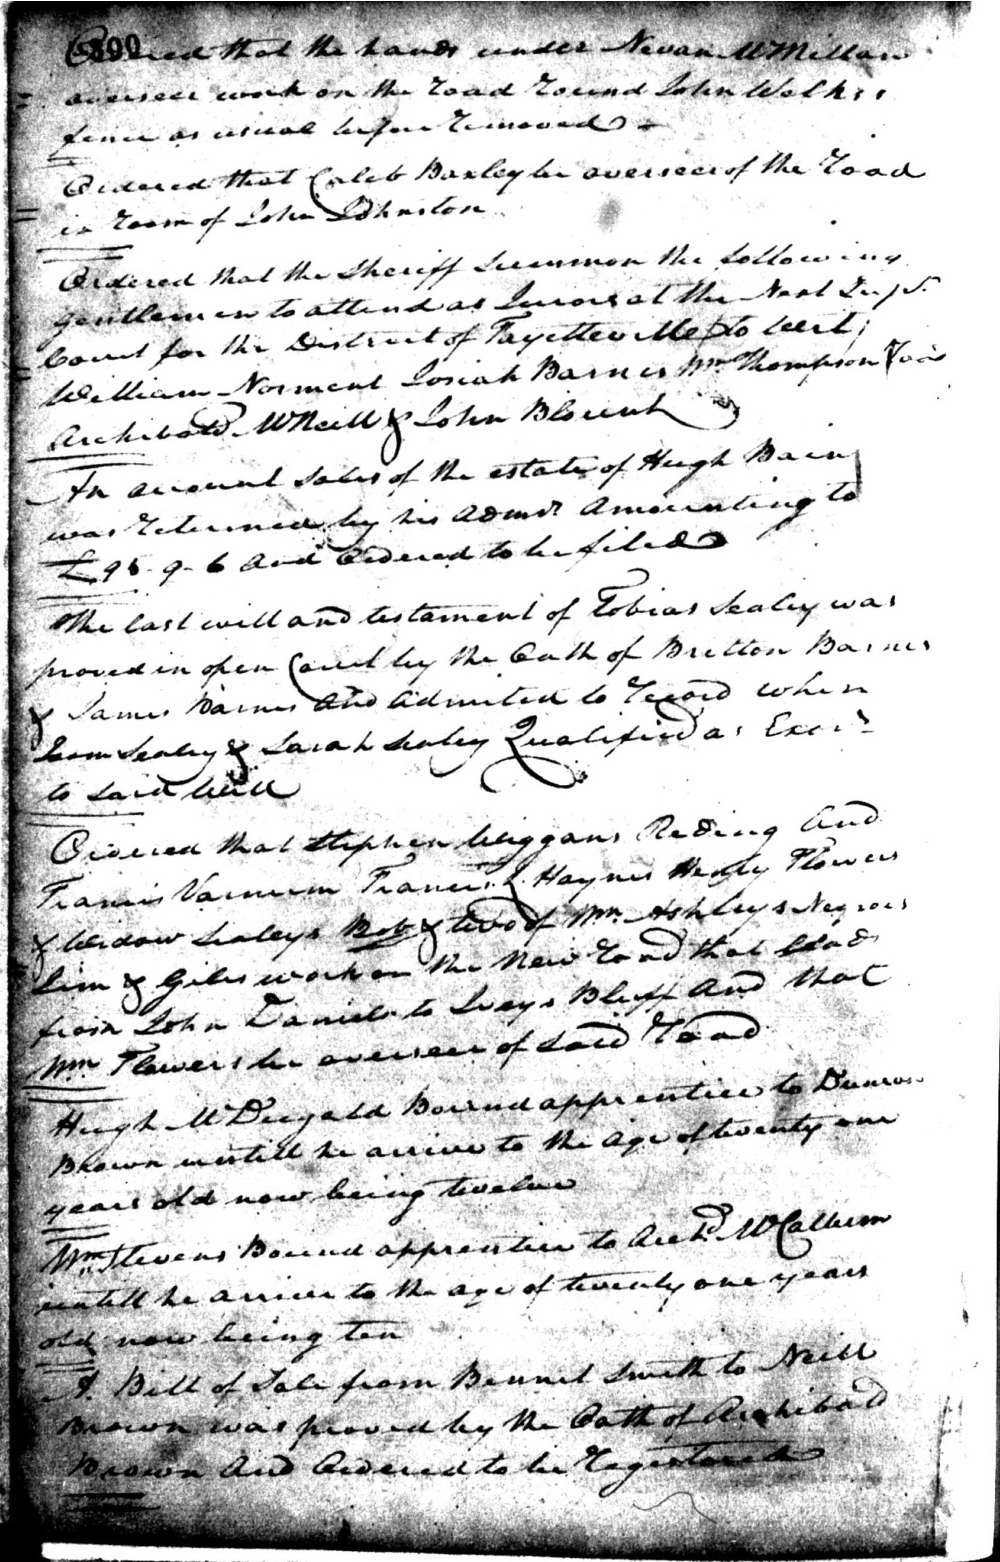 Ordered that the hands under Nevan McMillan
overseer work on the road round John Welkes
fence as usual before removed
Ordered that Caleb Baxley be overseer of the road
in room of John Johnston
Ordered that the Sheriff Summon the following
gentlemen to attend as Jurors at the Next Supr.
Court for the District of Fayetteville to Wit;
William Norment Josiah Barnes Wm Thompson
Archibald McNeill & John Blount
An account Sales of the estate of Hugh Bain
was returned by his Admr. Amounting to
9- 6 And Ordered to be filed
The last will and testament of Tobias Sealey was
proved in open Court by the Oath of Britton Barnes
& James Barnes And Admited to record when
Sealey & Sarah Sealey Qualified as Exors.
to said Will
Ordered that Stephen Wiggans Reding And
Francis Varnum Francis Haynes Henry Flowers
& Widow Sealeys Bob & two of Wm. Ashleys Negroes
Sim & Giles work on the New road that leads
from John Daniels to Iveys Bluff And that
Wm Flowers be overseer of Said road
Hugh McDugald Bound apprentice to Duncan
Brown untill he arrive to the age of twenty one
years old now being twelve
Wm. Stevens Bound apprentice to Archd. McCallum
untill he arrive to the age of twenty one years
old now being ten
A Bill of Sale from Bennet Smith to Neill
Brown was proved by the Oath of Archibald
Brown And Ordered to be Registered